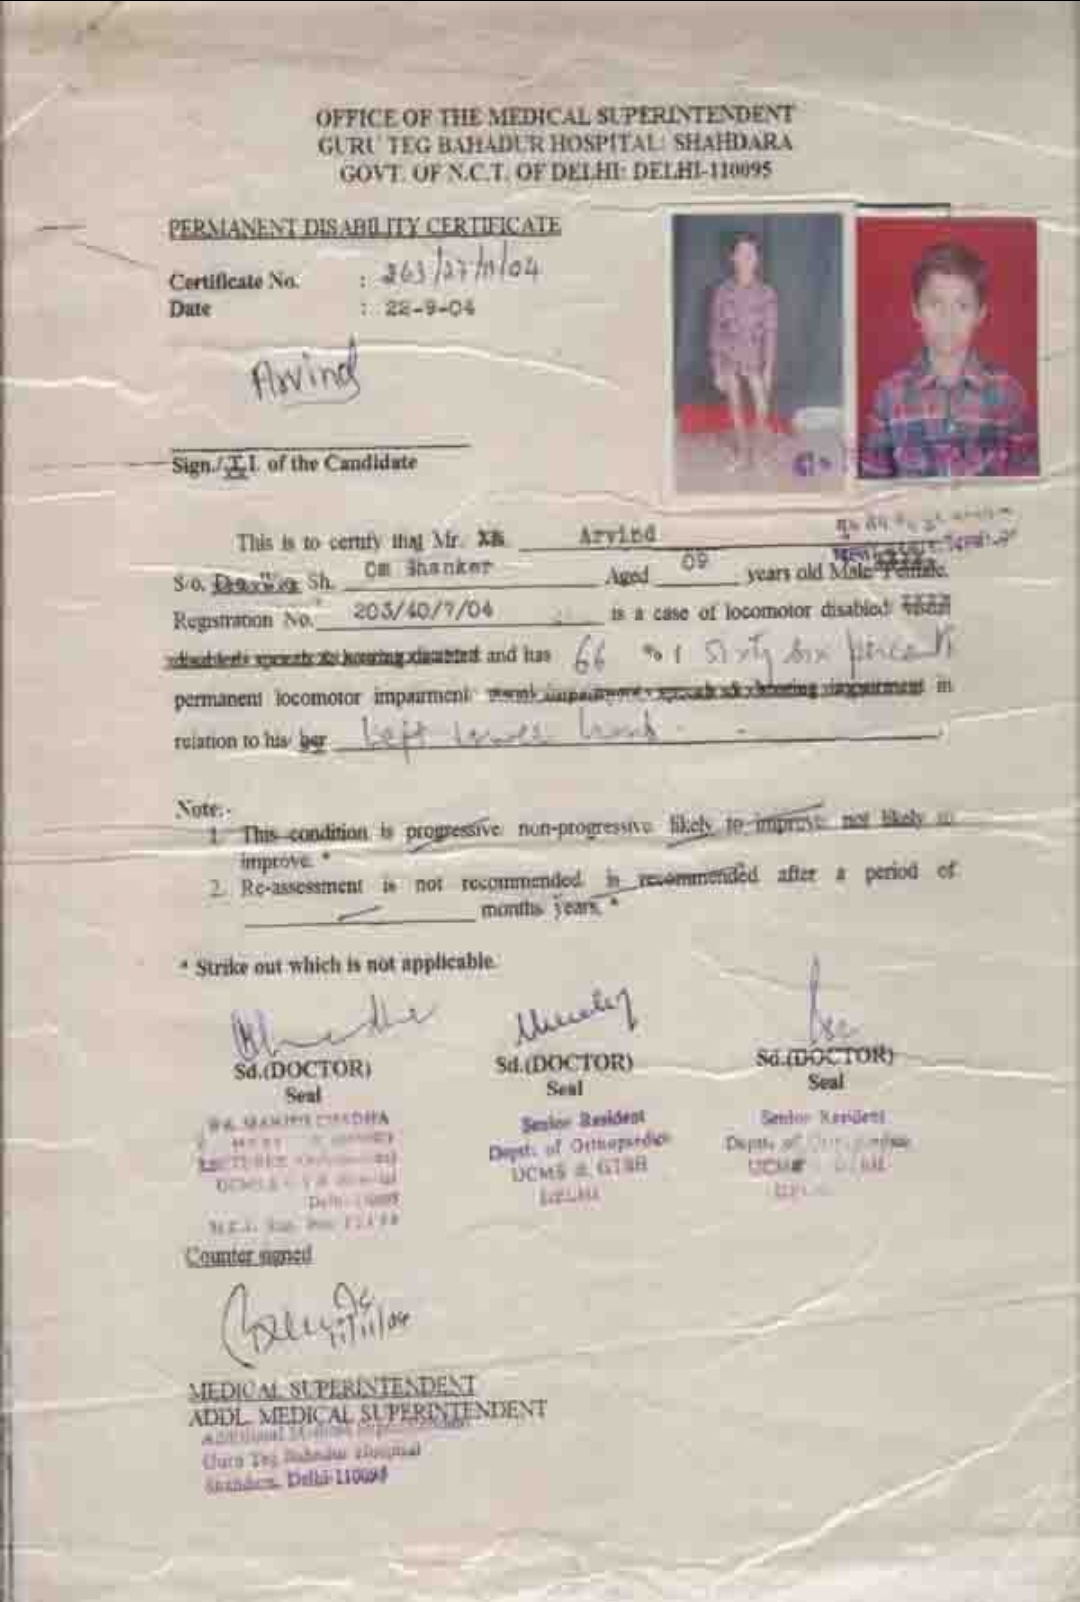 OFFICE OF THE MEDICAL SUPERINTENDENT
GURU TEG BAHADUR HOSPITAL: SHAHDARA
GOVT. OF N.C.T. OF DELHI: DELHI-110095
PERMANENT DISABILITY CERTIFICATE
Certificate No. : 263/27/11/04
Date : 22-9-04
Arvind
Sign./T.I. of the Candidate
This is to certify that Mr. Arvind
S/o. Sh. Om Shanker Aged 09 years old Male/Female.
Registration No. 203/40/7/04 is a case of locomotor disabled
disabled/speech & hearing disabled and has 66 % ( Sixty Six percent
permanent locomotor impairment in
relation to his/her Left lower limb
Note:-
1. This condition is progressive/non-progressive/likely to improve/not likely to
improve. *
2. Re-assessment is not recommended/is recommended after a period of
months/years. *
* Strike out which is not applicable.
Sd.(DOCTOR) Sd.(DOCTOR) Sd.(DOCTOR)
Seal Seal Seal
Senior Resident Senior Resident
Deptt. of Orthopaedics Deptt. of
UCMS & GTBH
DELHI
Counter signed
11/11/04
MEDICAL SUPERINTENDENT
ADDL. MEDICAL SUPERINTENDENT
Additional Medical Superintendent
Guru Teg Bahadur Hospital
Shahdara, Delhi-110095